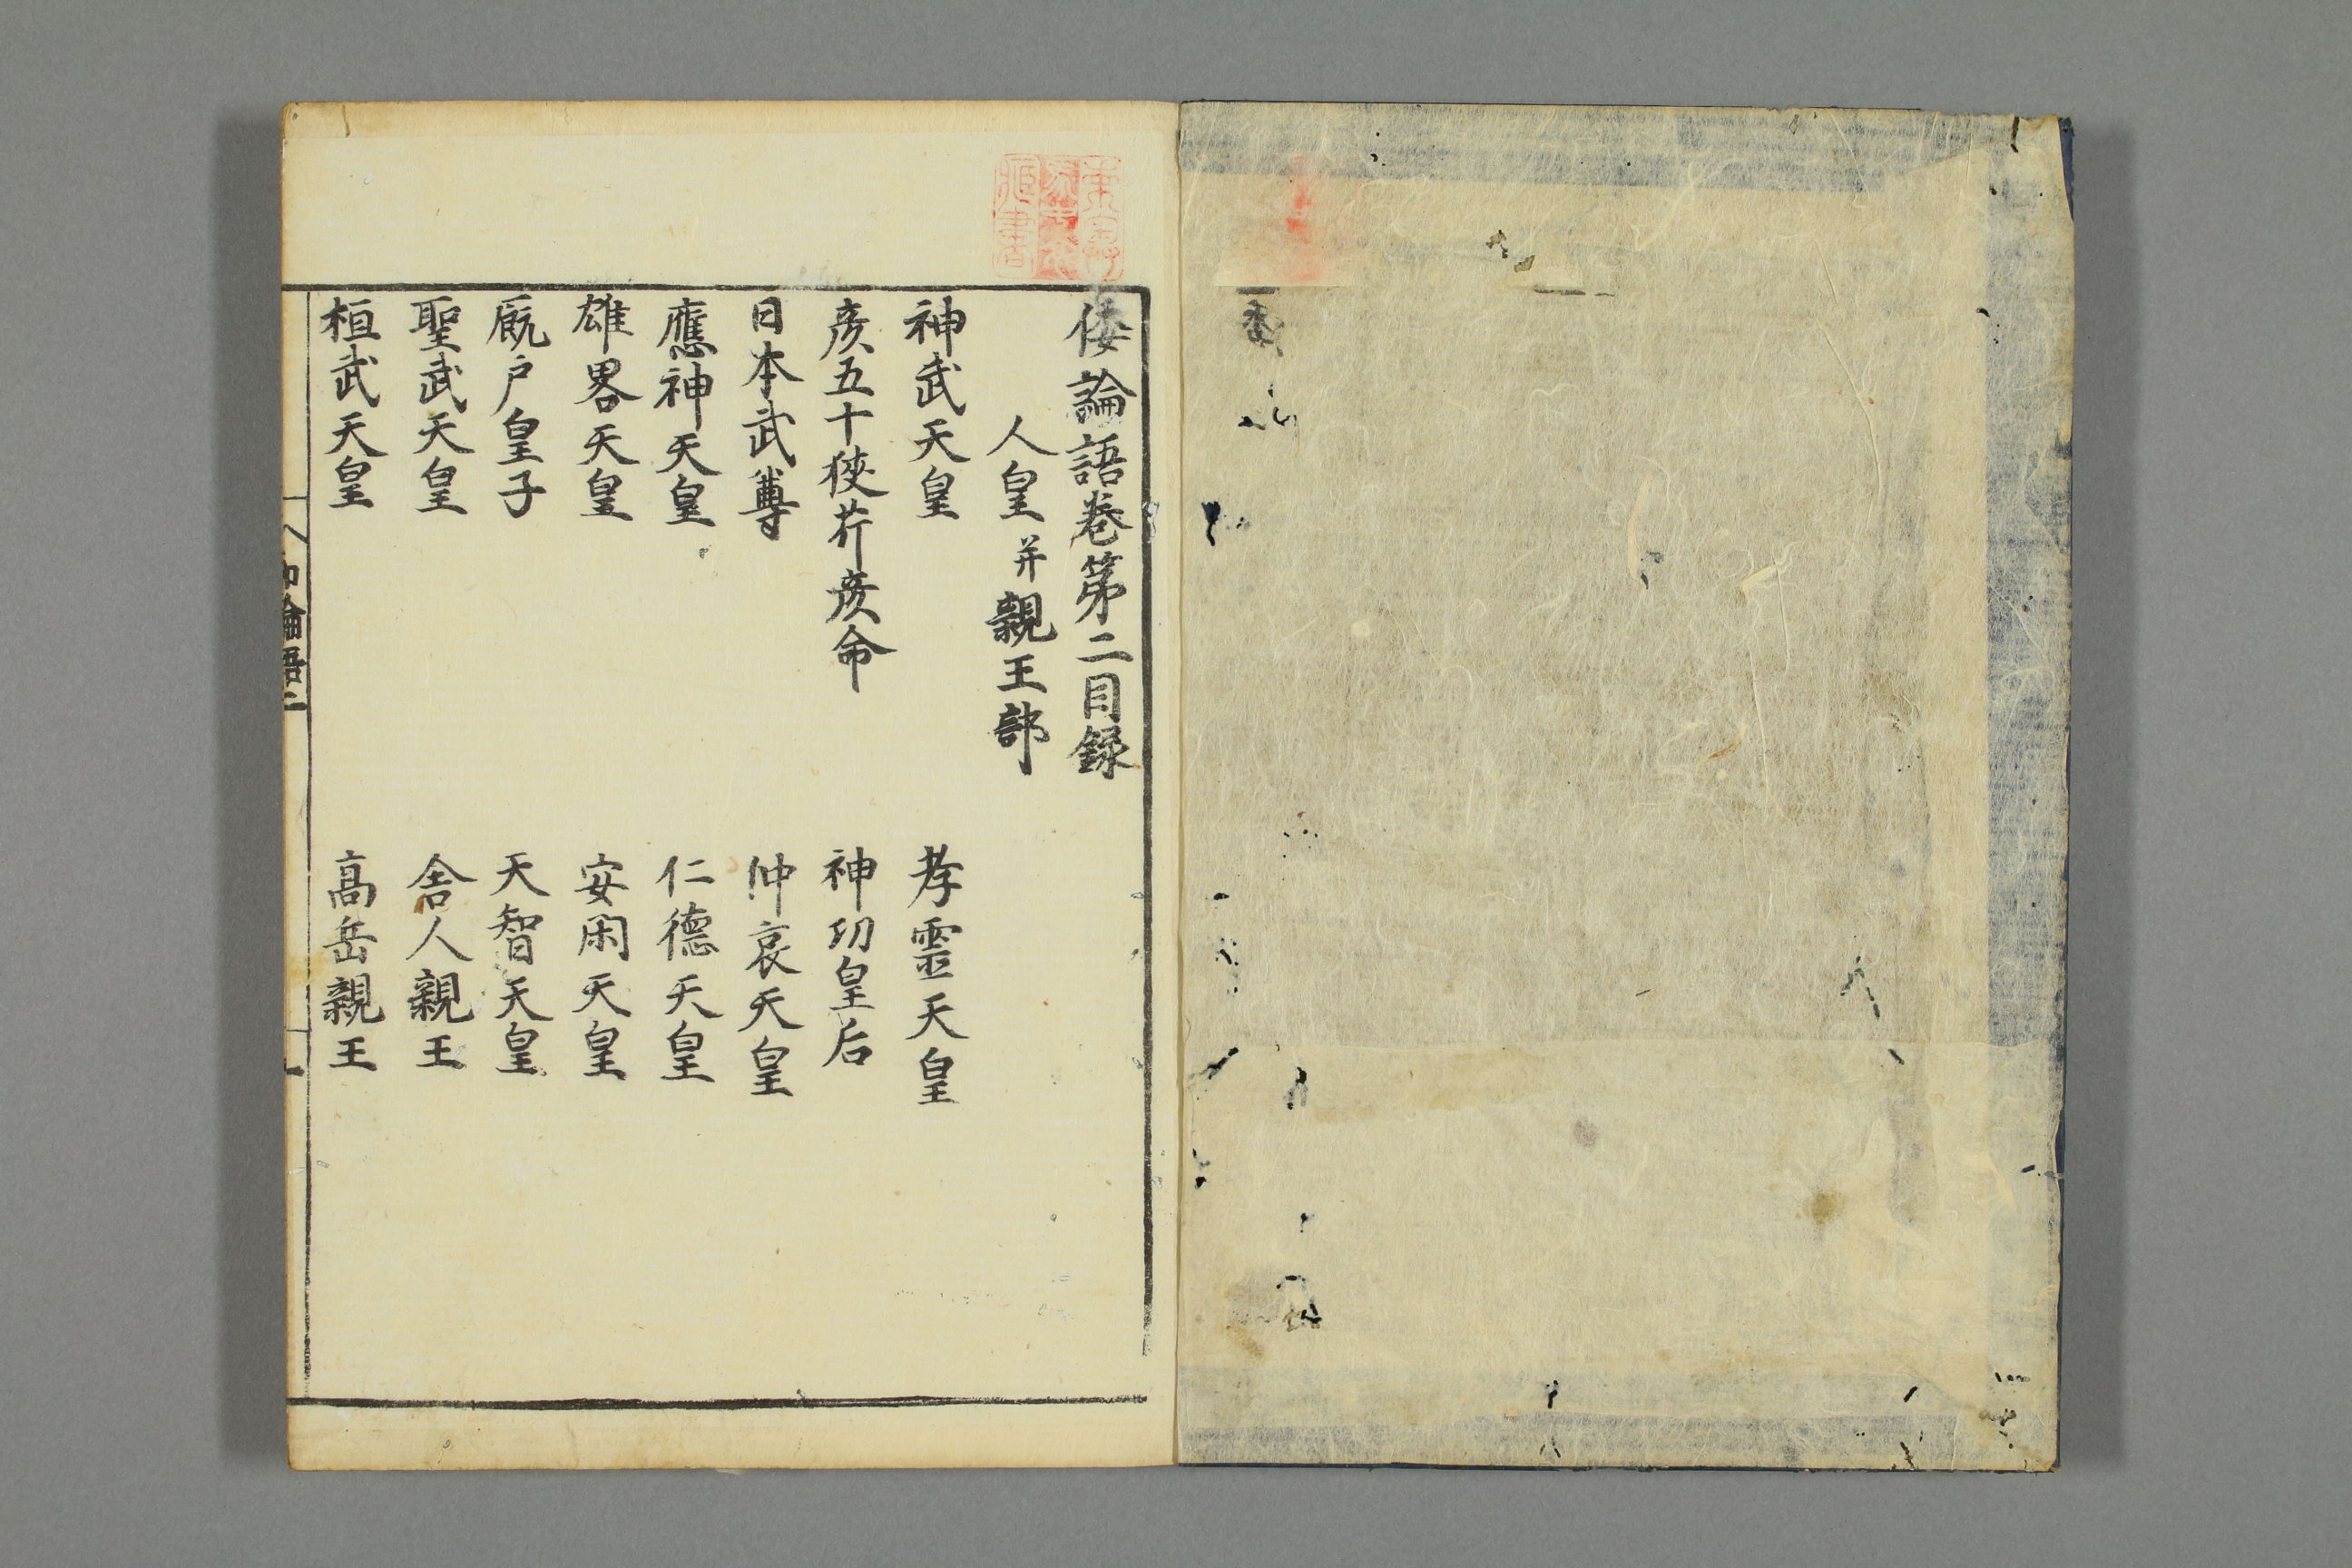 倭論語卷第二目録
人皇并親王部
神武天皇　孝霊天皇
彦五十狹芹彦命　神功皇后
日本武尊　仲哀天皇
應神天皇　仁德天皇
雄畧天皇　安閑天皇
厩戸皇子　天智天皇
聖武天皇　舎人親王
桓武天皇　高岳親王
和論語二